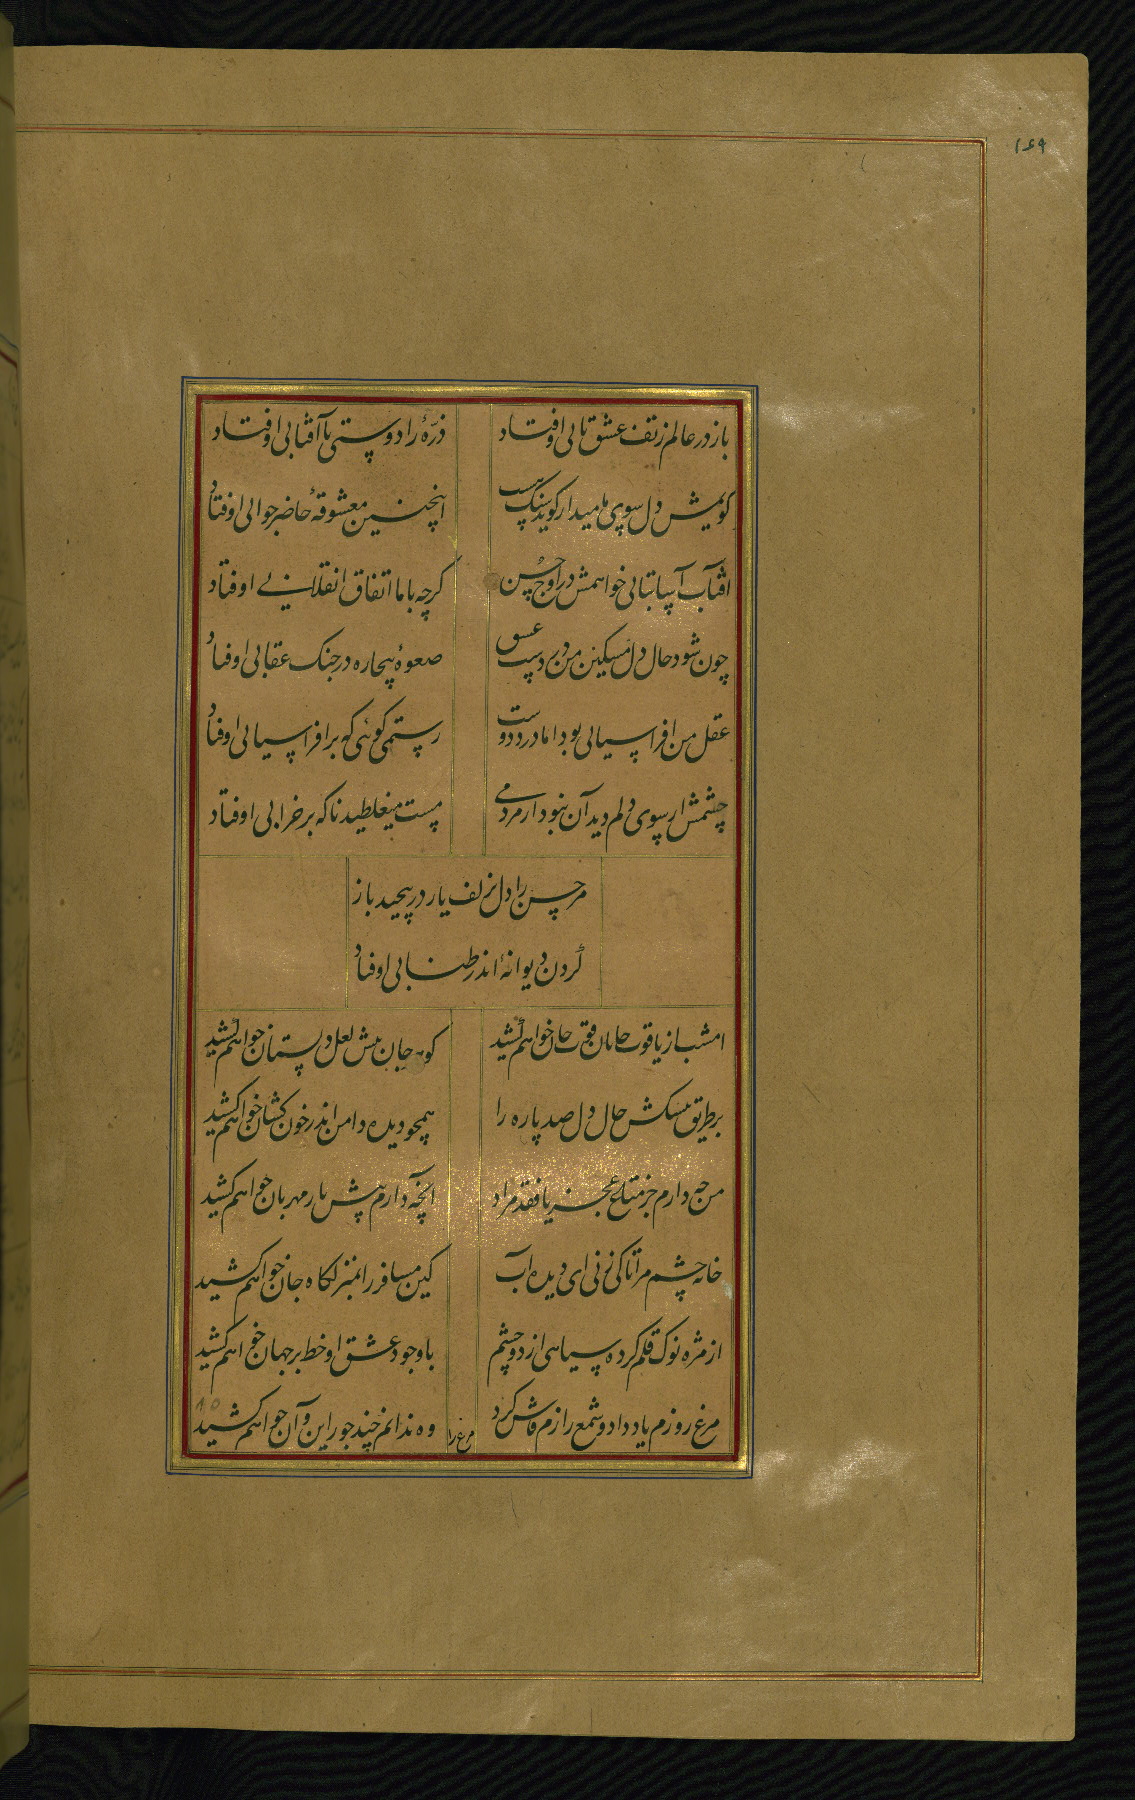 ۱۴۹
باز در عالم ز تف عشق تابی اوفتاد ذرهٔ را دوستی با آفتابی اوفتاد
گویمش دل سوی ما میدار گوید سنگ پست اینچنین معشوقهٔ حاضر جوابی اوفتاد
آفتاب آسیا تابی خواهمش در اوج حسن گرچه با ما اتفاق انقلابی اوفتاد
چون شود حال دل مسکین من در دست عشق صعوهٔ بیچاره در چنگ عقابی اوفتاد
عقل من افراسیابی بود اما درد دوست رستمی گوئی که بر افراسیابی اوفتاد
چشمش ار سوی دلم دید آن نبود از مردمی مست میغلطید ناگه بر خرابی اوفتاد
مر حسن را دل بزلف یار در پیچید باز
گردن دیوانهٔ اندر طنابی اوفتاد
امشب از یاقوت جانان قوت جان خواهم کشید جان پیش لعل دلستان خواهم کشید
بر طریق پیشکش حال دل صد پاره را همچو دیده دامن اندر خون کشان خواهم کشید
من چه دارم جز متاع عجز یا نقد مراد آنچه دارم پیش یار مهربان خواهم کشید
خانه چشم مرا تا کی زنی ای دیده آب کین مسافر را بمنزلگاه جان خواهم کشید
از مژه نوک قلم کرده سیاهی از دو چشم با وجود عشق او خط بر جهان خواهم کشید
مرغ روزم یاد داد و شمع رازم فاش کرد وه ندانم چند جور این و آن خواهم کشید
مرغ را